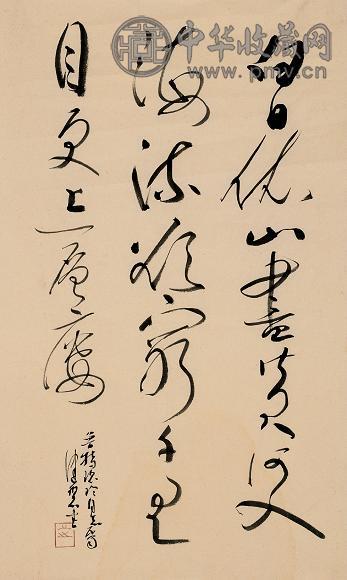 白日依山尽黄河入
海流欲穷千里
目更上一层楼
中华收藏网
www.pmv.cn